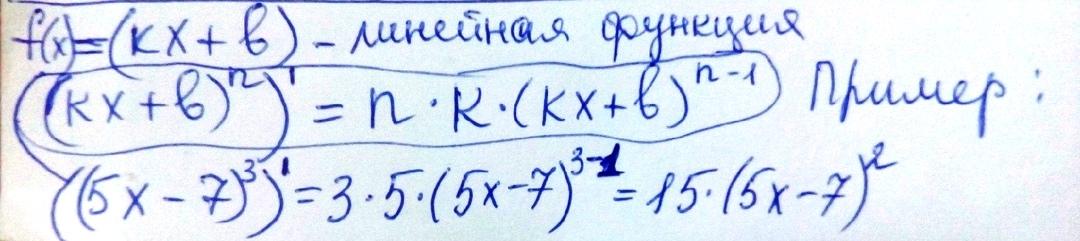 f(x)=(kx+b) – линейная функция
((kx+b)ⁿ)' = n·k·(kx+b)ⁿ⁻¹ Пример:
((5x-7)³)' = 3·5·(5x-7)³⁻¹ = 15·(5x-7)²